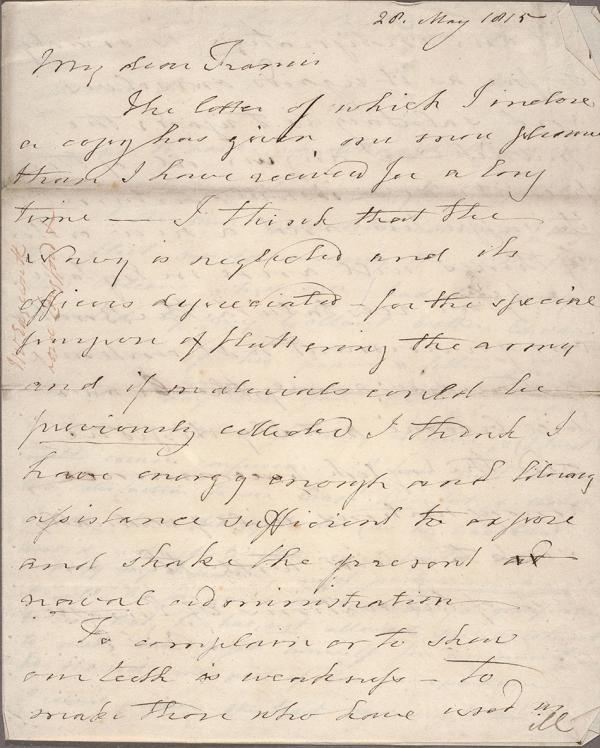 28. May 1815
My dear Francis
The letter of which I inclose
a copy has given me more pleasure
than I have received for a long
time — I think that the
Navy is neglected and its
officers depreciated - for the
purpose of flattering the army
and if materials could be
previously collected I think I
have energy enough and literary
assistance sufficient to expose
and shake the present
naval administration
To complain or to shew
our teeth is weakness - to
make those who have used us
ill